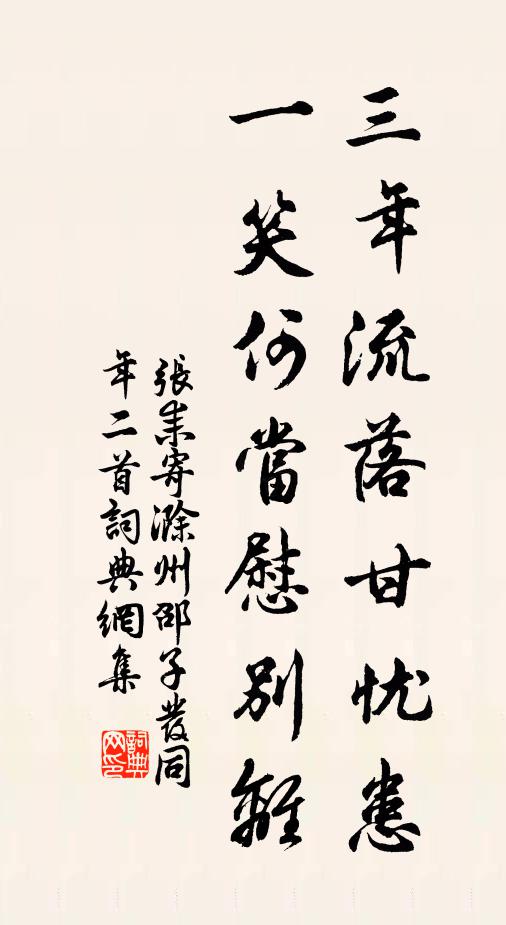 三年流落甘忧患
一笑何當慰別離
張耒寄滁州邵子發同
年二首詞典網集
詞典
网印